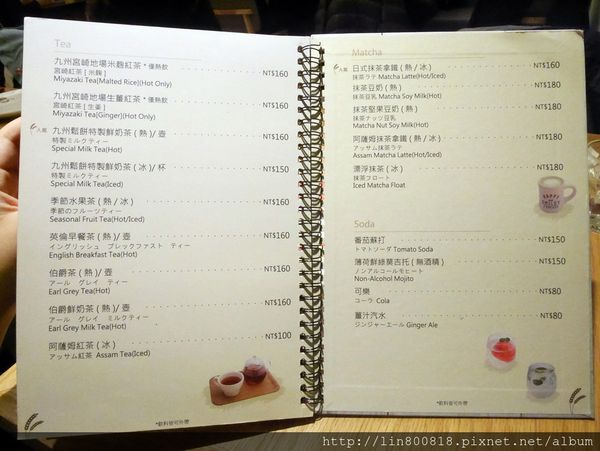 Tea
九州宮崎地場米麴紅茶 *僅熱飲 NT$160
宮崎紅茶 [ 米麴 ]
Miyazaki Tea(Malted Rice)(Hot Only)
九州宮崎地場生薑紅茶 *僅熱飲 NT$160
宮崎紅茶 [ 生姜 ]
Miyazaki Tea(Ginger)(Hot Only)
人氣 九州鬆餅特製鮮奶茶 ( 熱 )/ 壺 NT$160
特製ミルクティー
Special Milk Tea(Hot)
九州鬆餅特製鮮奶茶 ( 冰 )/ 杯 NT$150
特製ミルクティー
Special Milk Tea(Iced)
季節水果茶 ( 熱 / 冰 ) NT$160
季節のフルーツティー
Seasonal Fruit Tea(Hot/Iced)
英倫早餐茶 ( 熱 )/ 壺 NT$160
イングリッシュ ブレックファスト ティー
English Breakfast Tea(Hot)
伯爵茶 ( 熱 )/ 壺 NT$160
アール グレイ ティー
Earl Grey Tea(Hot)
伯爵鮮奶茶 ( 熱 )/ 壺 NT$160
アール グレイ ミルクティー
Earl Grey Milk Tea(Hot)
阿薩姆紅茶 ( 冰 ) NT$100
アッサム紅茶 Assam Tea(Iced)
*飲料皆可外帶
Matcha
人氣 日式抹茶拿鐵 ( 熱 / 冰 ) NT$160
抹茶ラテ Matcha Latte(Hot/Iced)
抹茶豆奶 ( 熱 ) NT$180
抹茶豆乳 Matcha Soy Milk(Hot)
抹茶堅果豆奶 ( 熱 ) NT$180
抹茶ナッツ豆乳
Matcha Nut Soy Milk(Hot)
阿薩姆抹茶拿鐵 ( 熱 / 冰 ) NT$180
アッサム抹茶ラテ
Assam Matcha Latte(Hot/Iced)
漂浮抹茶 ( 冰 ) NT$180
抹茶フロート
Iced Matcha Float
Soda
番茄蘇打 NT$150
トマトソーダ Tomato Soda
薄荷鮮綠莫吉托 ( 無酒精 ) NT$150
ノンアルコールモヒート
Non-Alcohol Mojito
可樂 NT$80
コーラ Cola
薑汁汽水 NT$80
ジンジャーエール Ginger Ale
*飲料皆可外帶
http://lin800818.pixnet.net/album